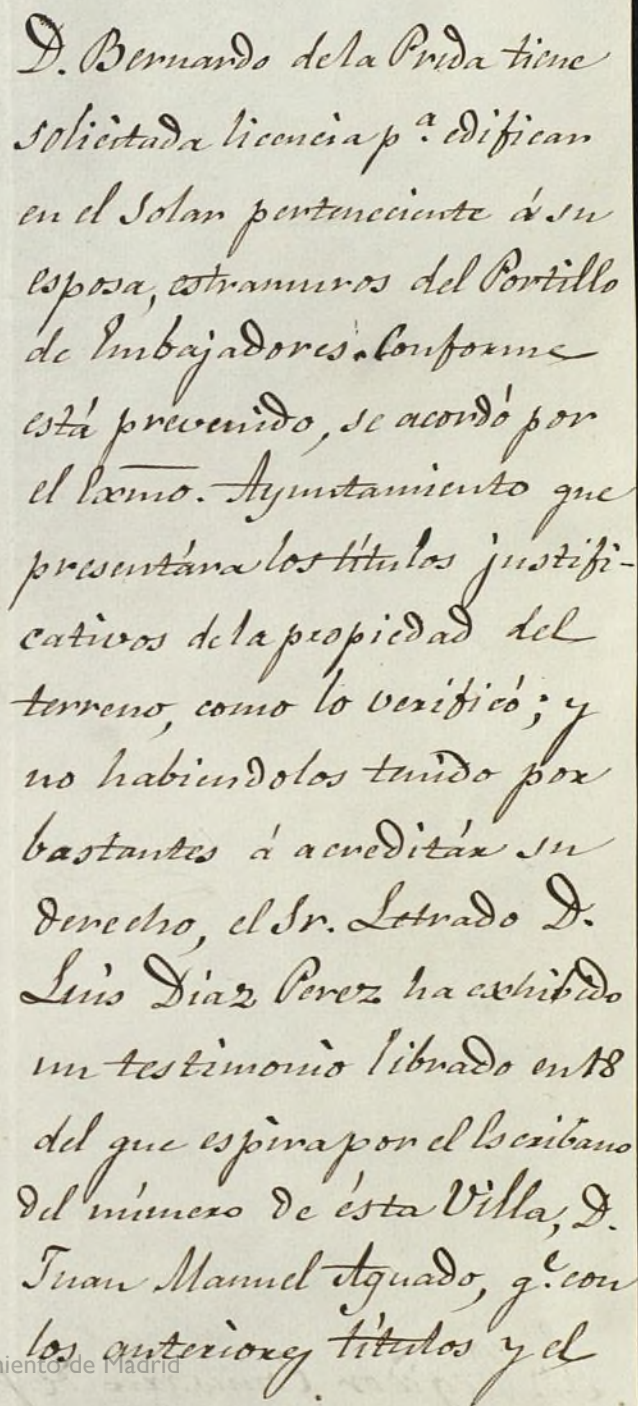 D. Bernardo de la Prida tiene
solicitada licencia p.ª edificar
en el Solar perteneciente á su
esposa, estramuros del Portillo
de Embajadores. Conforme
está prevenido, se acordó por
el Exmo. Ayuntamiento que
presentára los títulos justifi-
cativos de la propiedad del
terreno, como lo verificó; y
no habiendolos tenido por
bastantes á acreditár su
derecho, el Sr. Letrado D.
Luis Diaz Perez ha exhibido
un testimonio librado en 18
del que espira por el Escribano
del número de ésta Villa, D.
Juan Manuel Aguado, q.e con
los anteriores títulos y el
miento de Madrid